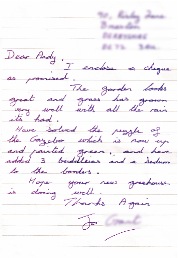 Dear Andy,
I enclose a cheque
as promised.
The garden looks
great and grass has grown
very well with all the rain
its had.
Have solved the puzzle of
the Gazebo which is now up
and painted green, and have
added 3 buddleias and a Sedum
to the borders.
Hope your new greenhouse
is doing well.
Thanks Again
Jo